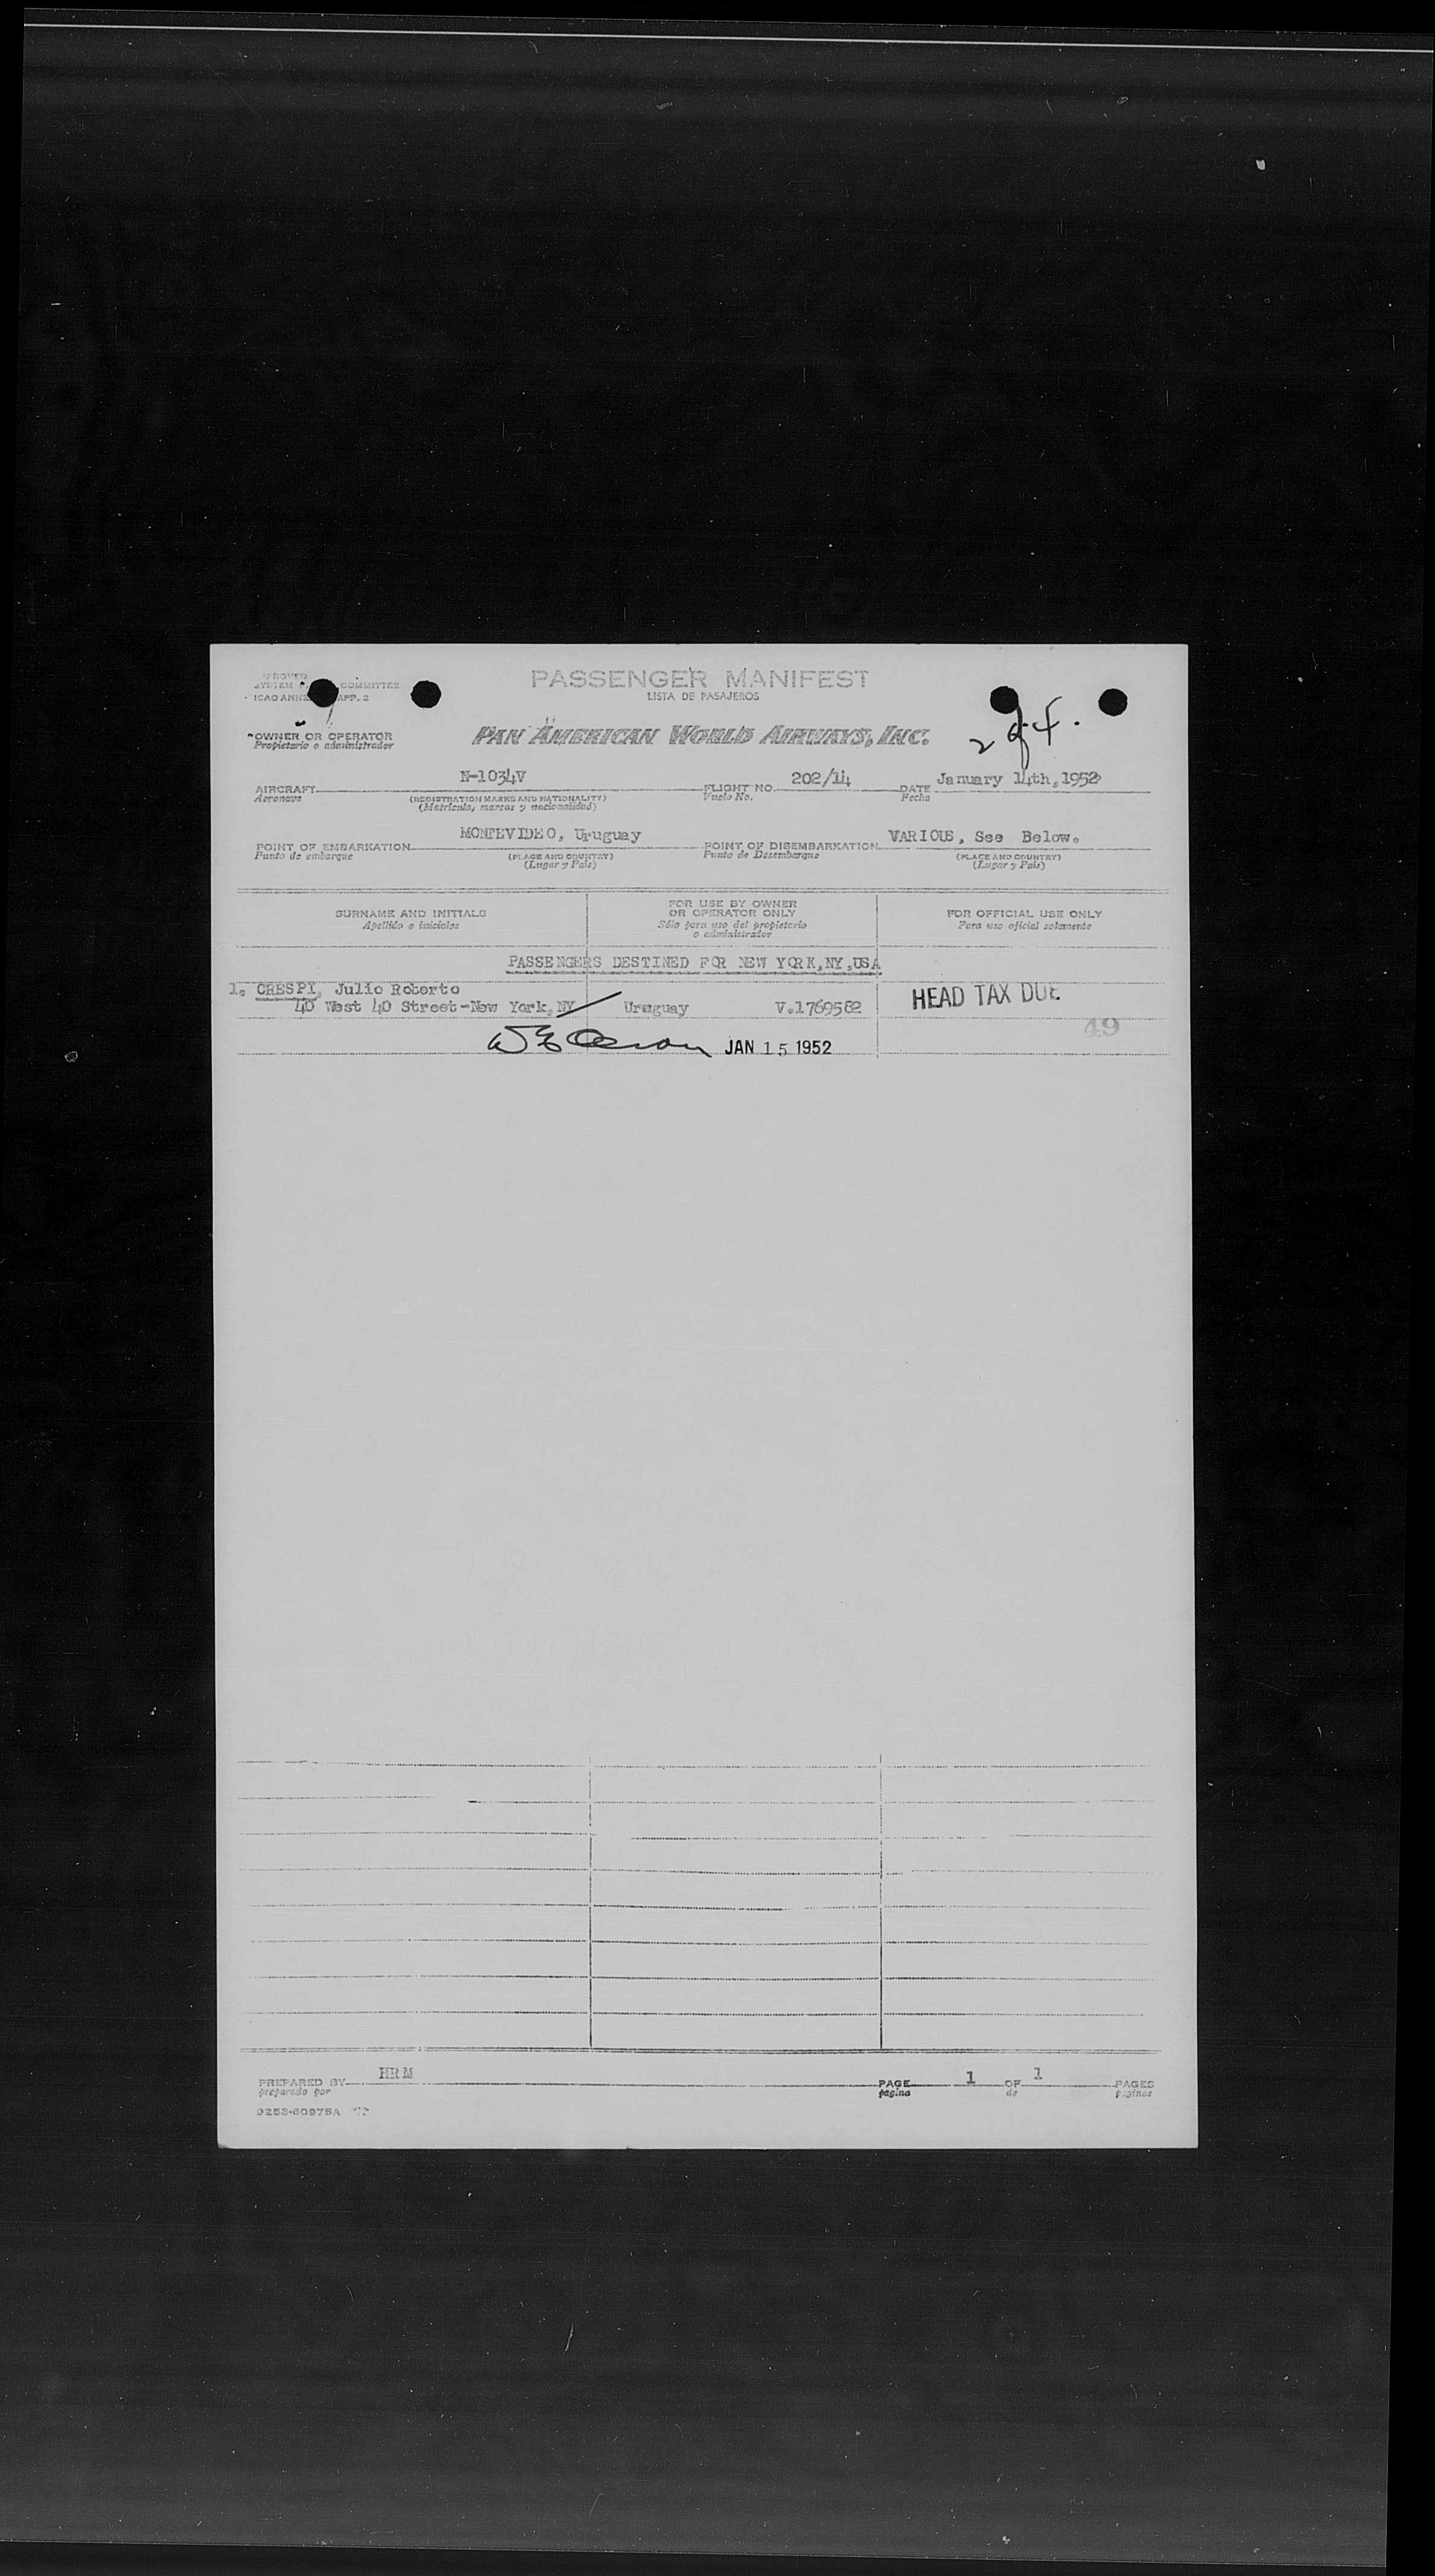 PASSENGER MANIFEST
LISTA DE PASAJEROS
SYSTEM COMMITTEE
ICAO ANNEX APP. 2
OWNER OR OPERATOR
Propietario o administrador
PAN AMERICAN WORLD AIRWAYS, INC.
2 of 4.
AIRCRAFT N-1034V FLIGHT NO. 202/14 DATE January 14th, 1952
Aeronave (REGISTRATION MARKS AND NATIONALITY) Vuelo No. Fecha
(Matrícula, marcas y nacionalidad)
POINT OF EMBARKATION MONTEVIDEO, Uruguay POINT OF DISEMBARKATION VARIOUS, See Below.
Punto de embarque (PLACE AND COUNTRY) Punto de Desembarque (PLACE AND COUNTRY)
(Lugar y País) (Lugar y País)
SURNAME AND INITIALS FOR USE BY OWNER OR OPERATOR ONLY FOR OFFICIAL USE ONLY
Apellido e iniciales Sólo para uso del propietario o administrador Para uso oficial solamente
PASSENGERS DESTINED FOR NEW YORK,NY,USA
1. CRESPI, Julio Roberto
40 West 40 Street-New York,NY Uruguay V.1769582 HEAD TAX DUE
49
JAN 15 1952
PREPARED BY HRM PAGE 1 OF 1 PAGES
preparado por página de páginas
9253-60975A